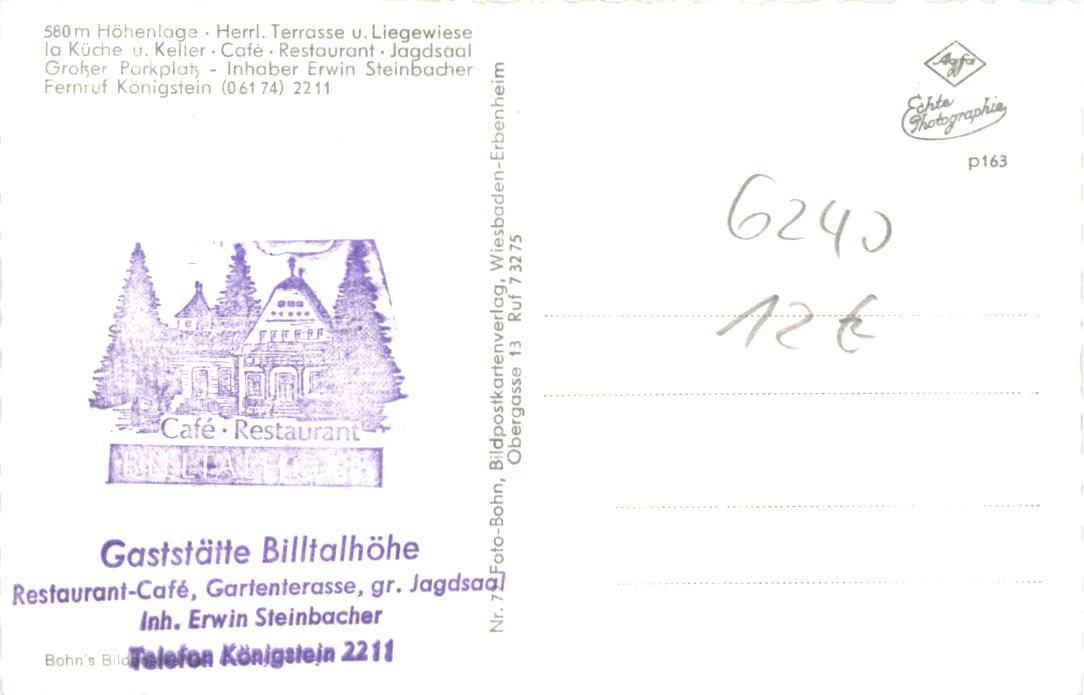 580 m Höhenlage · Herrl. Terrasse u. Liegewiese
Ia Küche u. Keller · Café · Restaurant · Jagdsaal
Großer Parkplatz - Inhaber Erwin Steinbacher
Fernruf Königstein (0 61 74) 22 11
Café · Restaurant
BILLTALHÖHE
Gaststätte Billtalhöhe
Restaurant-Café, Gartenterasse, gr. Jagdsaal
Inh. Erwin Steinbacher
Telefon Königstein 2211
Bohn's
Foto-Bohn, Bildpostkartenverlag, Wiesbaden-Erbenheim
Obergasse 13 Ruf 7 32 75
Agfa
Echte
Photographie
p163
6240
12 €